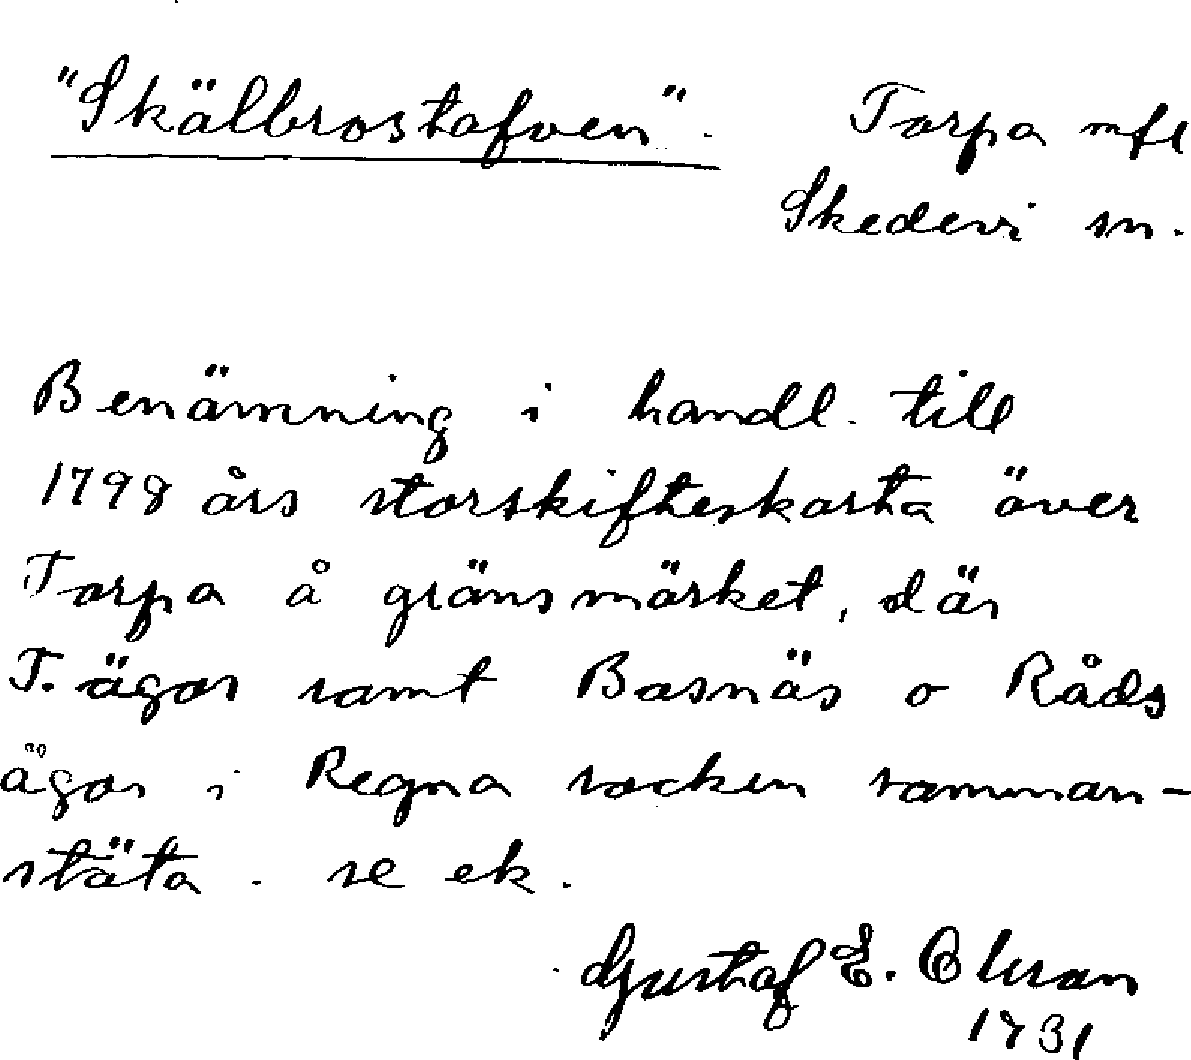 "Skälbrostafven". Torpa mfl
Skedevi sn.
Benämning i handl. till
1798 års storskifteskarta över
Torpa å gränsmärket, där
T. ägor samt Basnäs o Råds
ägor i Regna socken samman-
stöta. se ek.
Gustaf E. Olsson
1931